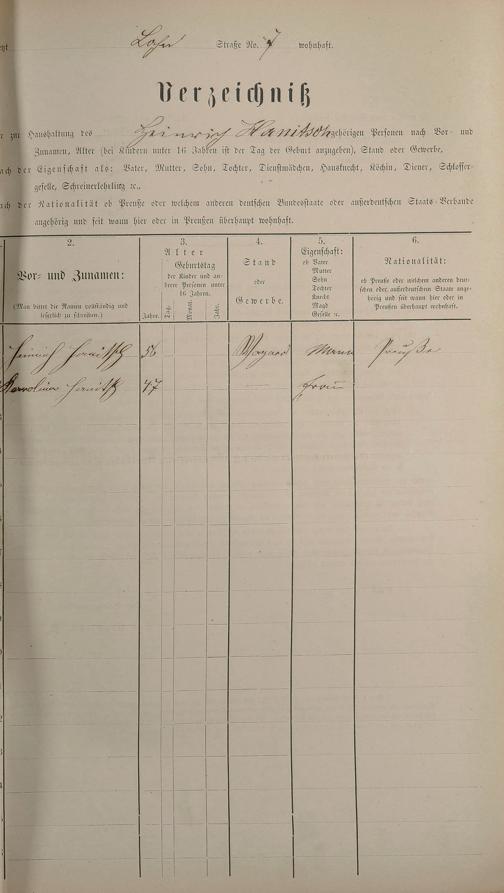 Straße No. 7 wohnhaft.
Verzeichniß
zur Haushaltung des Heinrich Hanitsch gehörigen Personen nach Vor- und
Zunamen, Alter (bei Kindern unter 16 Jahren ist der Tag der Geburt anzugeben), Stand oder Gewerbe,
nach der Eigenschaft als: Vater, Mutter, Sohn, Tochter, Dienstmädchen, Hausknecht, Köchin, Diener, Schlosser-
geselle, Schreinerlehrling ꝛc.,
nach der Nationalität ob Preuße oder welchem anderen deutschen Bundesstaate oder außerdeutschen Staats-Verbande
angehörig und seit wann hier oder in Preußen überhaupt wohnhaft.
2.
Vor- und Zunamen:
(Man bittet die Namen vollständig und
leserlich zu schreiben.)
3.
Alter
Geburtstag
der Kinder und an-
derer Personen unter
16 Jahren.
Jahre.
Tag.
Monat.
Jahr.
4.
Stand
oder
Gewerbe.
5.
Eigenschaft:
ob Vater
Mutter
Sohn
Tochter
Knecht
Magd
Geselle ꝛc.
6.
Nationalität:
ob Preuße oder welchem anderen deut-
schen oder außerdeutschen Staate ange-
hörig und seit wann hier oder in
Preußen überhaupt wohnhaft.
Heinrich Hanitsch 56 Mann Preuße
Karolina Hanitsch 47 Frau